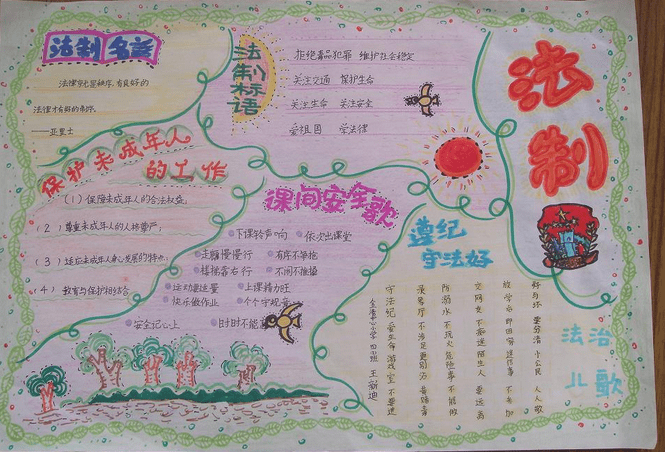 法制名言
法律就是秩序,有良好的
法律才有好的秩序。
——亚里士
法制标语
拒绝毒品犯罪 维护社会稳定
关注交通 保护生命
关注生命 关注安全
爱祖国 学法律
法制
保护未成年人
的工作
(1)保障未成年人的合法权益;
(2)尊重未成年人的人格尊严;
(3)适应未成年人身心发展的特点;
(4)教育与保护相结合
课间安全歌
下课铃声响 依次出课堂
走廊慢慢行 有序不争抢
楼梯靠右行 不闹不推搡
运动要适量 上课精力旺
快乐做作业 个个守规章
安全记心上 时时不能忘
遵纪
守法好
法治
儿歌
好与坏 要分清 小公民 人人敬
放学后 即回家 送作事 不参加
交网友 不受骗 陌生人 要远离
防溺水 不玩火 危险事 不能做
录像厅 不涉足
守法纪 爱生命 游戏室 不要进
小学 四班 王